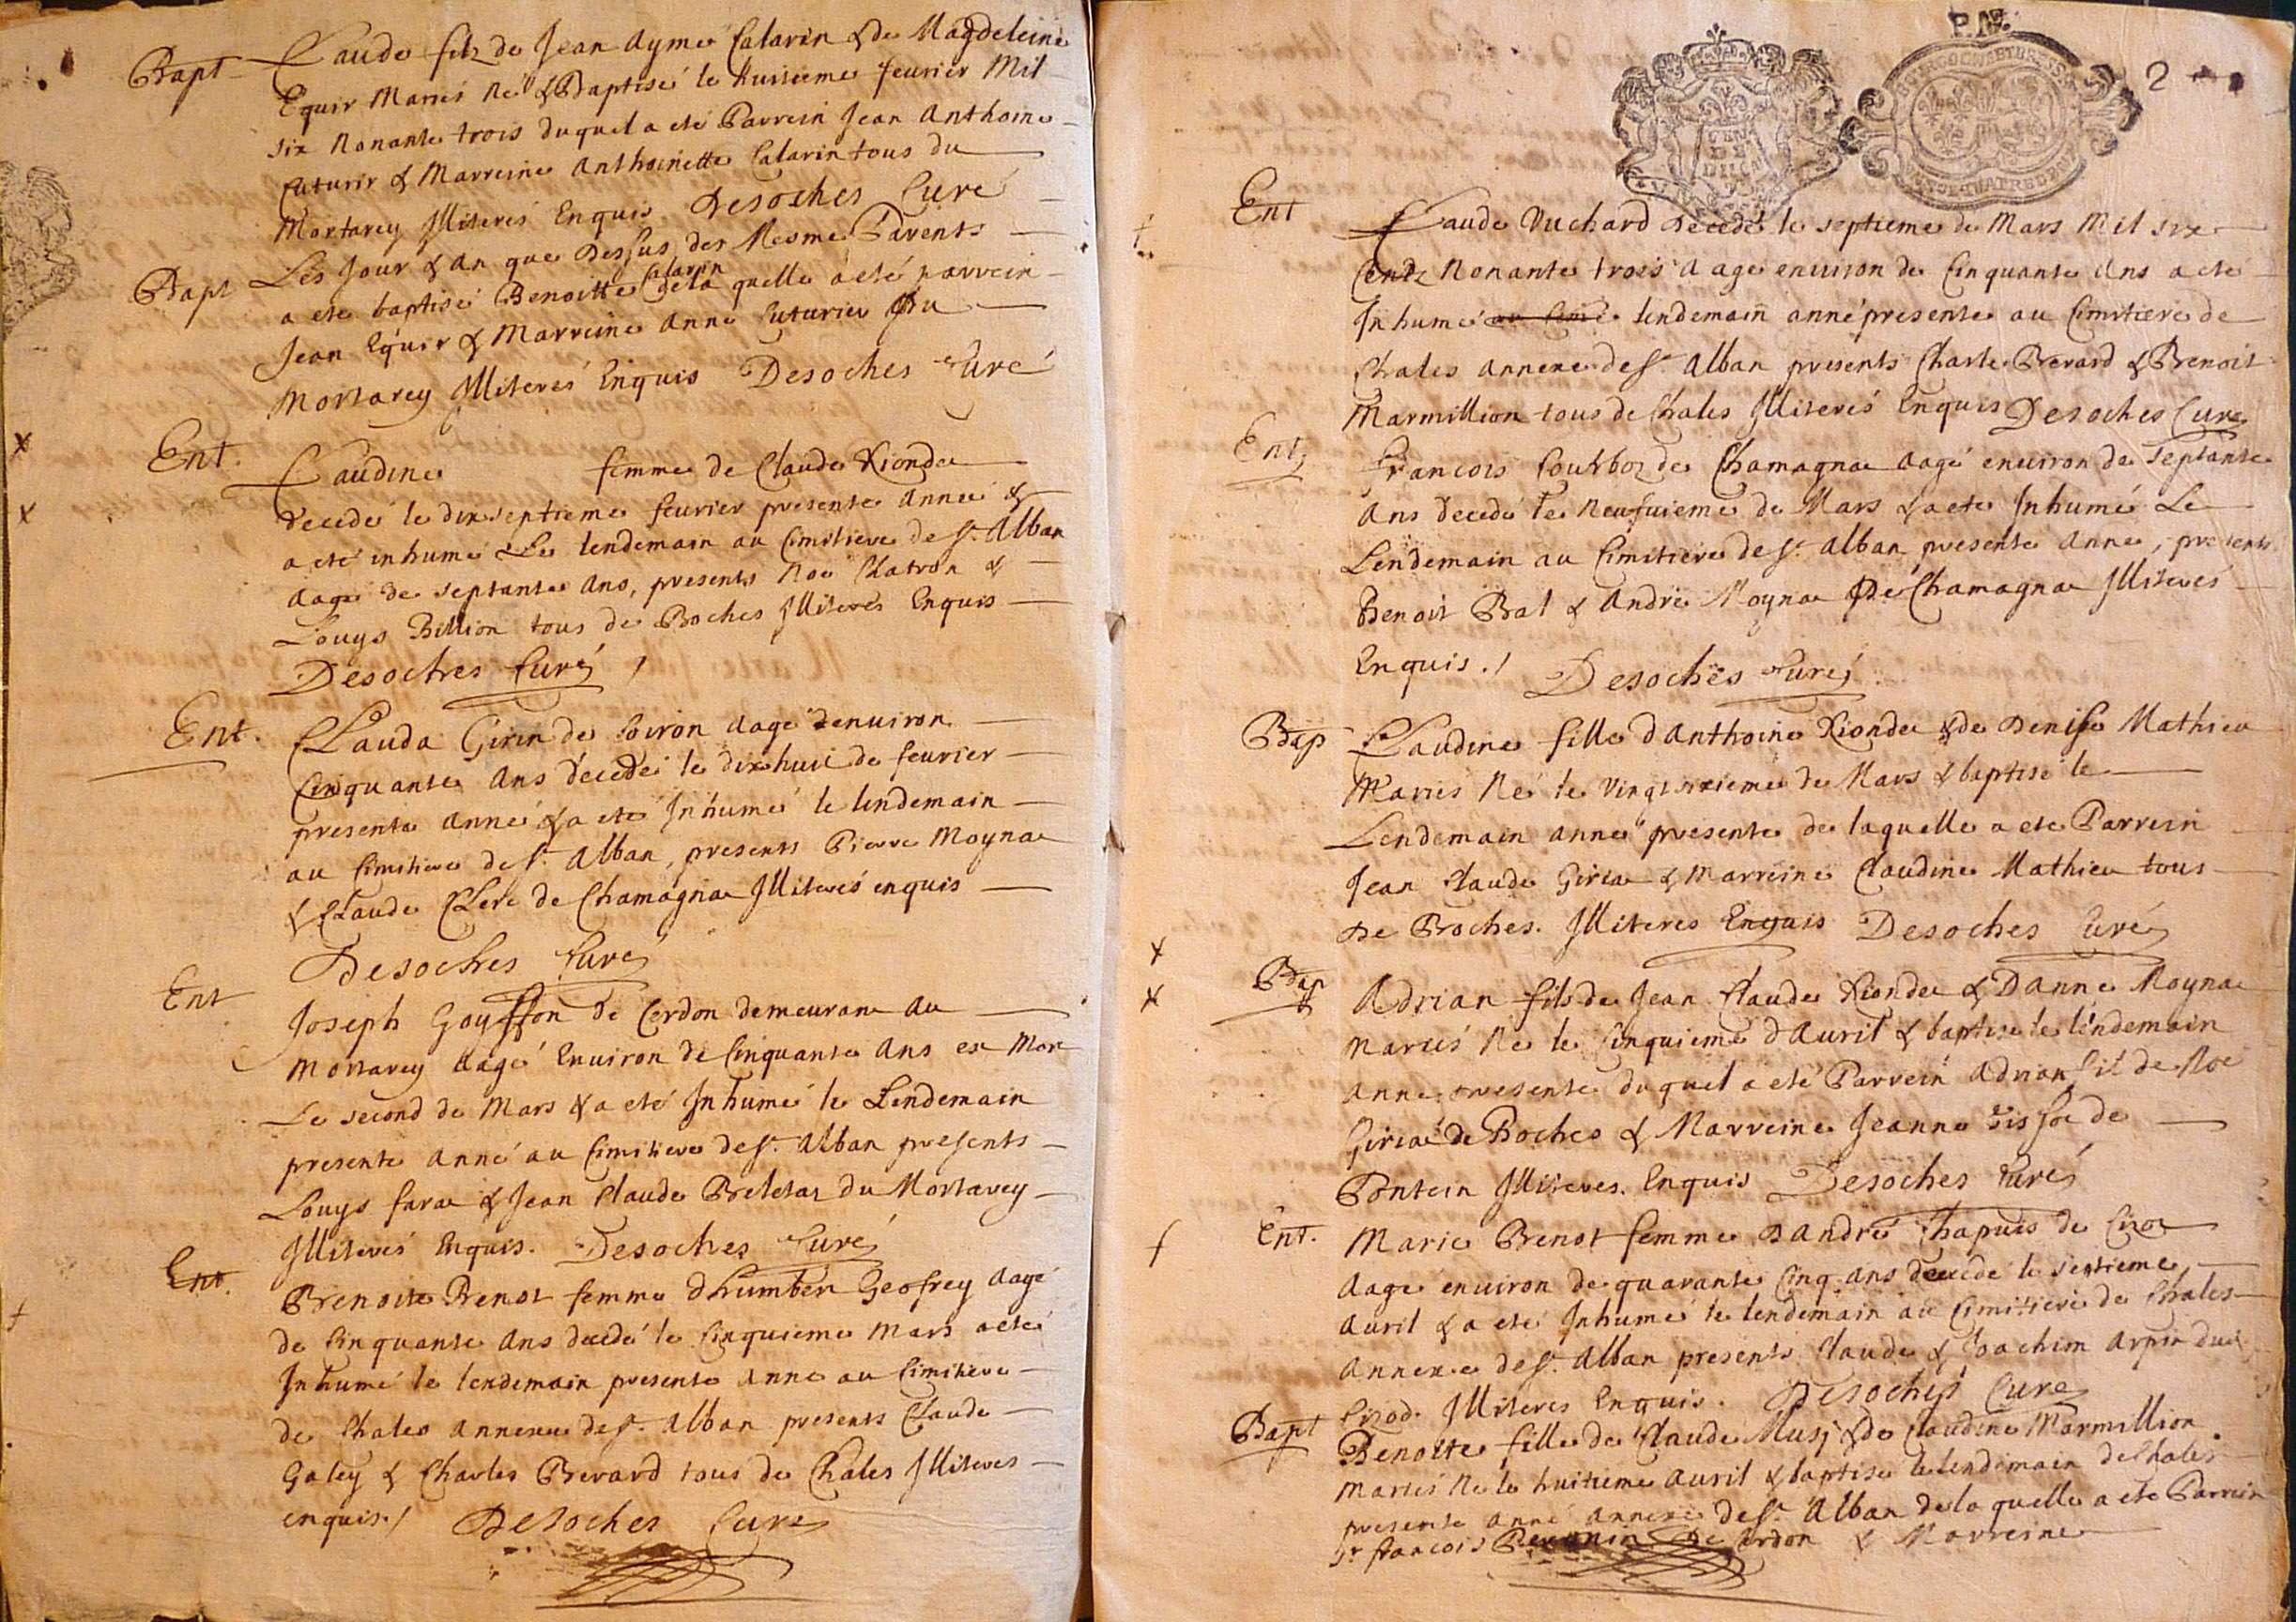 Bapt Claude filz de Jean Ayme Calarin & de Magdeleine
Equir Mariés Né & Baptisé le huitieme feurier Mil
six Nonante trois duquel a eté Parrein Jean Anthoine
Cuturir & Marreine Anthoinette Calarin tous du
Mortarey Illiterés Enquis Desoches Curé
Bapt Les Jour & an que Dessus des Mesme Parents
a ete baptisé Benoitte Calarin de la quelle a eté parrein
Jean Equir & Marreine Anne Cuturier Du
Mortarey Illiterés Enquis Desoches Curé
Ent. Claudine femme de Claude Rionde
decedé le dixseptieme feurier presente Anneé &
a eté inhumé Le lendemain au Cimitiere de St. Alban
Aagé de septante ans, presents Noé Chatron &
Louys Billion tous de Boches Illiterés Enquis
Desoches Curé /
Ent. Clauda Girin de Coiron aagé denuiron
Cinquante Ans decedé le dixhuit de feurier
presente Anné & a eté Inhumé le lendemain
au Cimitiere de St. Alban, presents Pierre Moyna
& Claude Clerc de Chamagna Illiterés enquis
Desoches Curé
Ent Joseph Goyffon de Cerdon demeurant au
Mortarey aagé Enuiron de Cinquante Ans est Mort
Le second de Mars & a eté Inhumé le Lendemain
presente anné au Cimitiere de St. Alban presents
Louys fara & Jean Claude Beletaz du Mortarey
Illiterés Enquis. Desoches Curé
Ent. Benoite Benot femme d'humbert Geofrey aagé
de Cinquante ans decedé le Cinquieme Mars a eté
Inhumé le lendemain presente Anne au Cimitiere
de Chales annexe de St. Alban presents Claude
Galey & Charles Berard tous de Chales Illiteres
enquis / Desoches Curé
2
Ent Claude Vuchard Decedé le septieme de Mars Mil six
Centz Nonante trois aagé enuiron de Cinquante Ans a eté
Inhumé lendemain anné presente au Cimitiere de
Chales annexe de St. Alban presents Charle Berard & Benoit
Marmillion tous de Chales Illiterés Enquis Desoches Curé
Ent. Francois de Chamagna aagé enuiron de Septante
Ans decedé le Neufuieme de Mars & a eté Inhumé Le
Lendemain au Cimitiere de St. Alban presente Anne, presents
Benoit Bal & André Moyna De Chamagna Illiterés
Enquis ./ Desoches Curé
Bap Claudine fille d'Anthoine Rionde & de Denise Mathieu
Mariés Né le Vingtsixieme de Mars & baptisé le
Lendemain anneé presente de laquelle a eté Parrein
Jean Claude Giria & Marreine Claudine Mathieu tous
de Boches. Illiteres Enquis Desoches Curé
Bap Adrian fils de Jean Claude Rionde & D'anne Moyna
Mariés Né le Cinquieme d'Auril & baptisé le lendemain
Anne presente duquel a eté Parrein Adrian fil de Noé
Giria de Boches & Marreine Jeanne de
Pontein Illiteres. Enquis Desoches Curé
Ent. Marie Benot femme D'andré Chapuis de Cizod
aagé enuiron de quarante Cinq ans decedé le septieme
Auril & a eté Inhumé le lendemain au Cimitiere de Chales
Annexe de St. Alban presents Claude & Joachim Arpin du
Cizod. Illiteres Enquis. Desoches Curé
Bapt Benoite fille de Claude Musy & de Claudine Marmillion
Mariés Né le huitieme Auril & baptisé le lendemain de Chales
presente anné annexe de St. Alban de la quelle a eté Parrein
Sr francois de Cerdon & Marreine